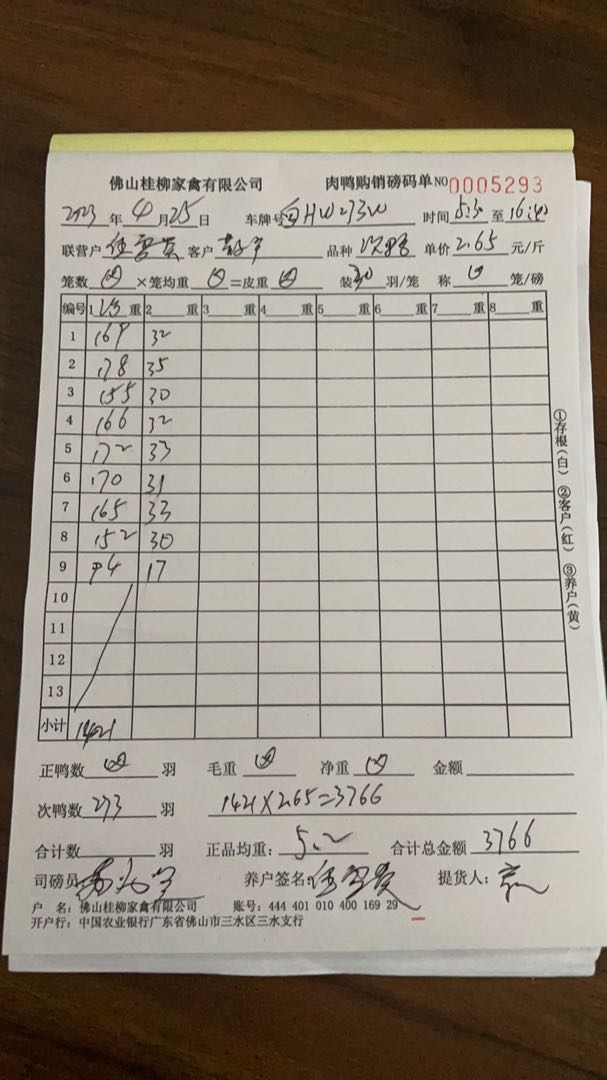 佛山桂柳家禽有限公司 肉鸭购销磅码单 NO 0005293
2023 年 4 月 25 日 车牌号 HW273W 时间 至
联营户 客户 品种 次鸭 单价 2.65 元/斤
笼数 ×笼均重 =皮重 装 30 羽/笼 称 笼/磅
编号 1 重 2 重 3 重 4 重 5 重 6 重 7 重 8 重
1 169 32
2 178 35
3 155 30
4 166 32
5 172 33
6 170 31
7 165 33
8 152 30
9 94 17
10
11
12
13
小计 1421
①存根(白) ②客户(红) ③养户(黄)
正鸭数 羽 毛重 净重 金额
次鸭数 273 羽 1421×2.65=3766
合计数 羽 正品均重: 5.2 合计总金额 3766
司磅员 养户签名: 提货人:
户 名: 佛山桂柳家禽有限公司 账号: 444 401 010 400 169 29
开户行: 中国农业银行广东省佛山市三水区三水支行